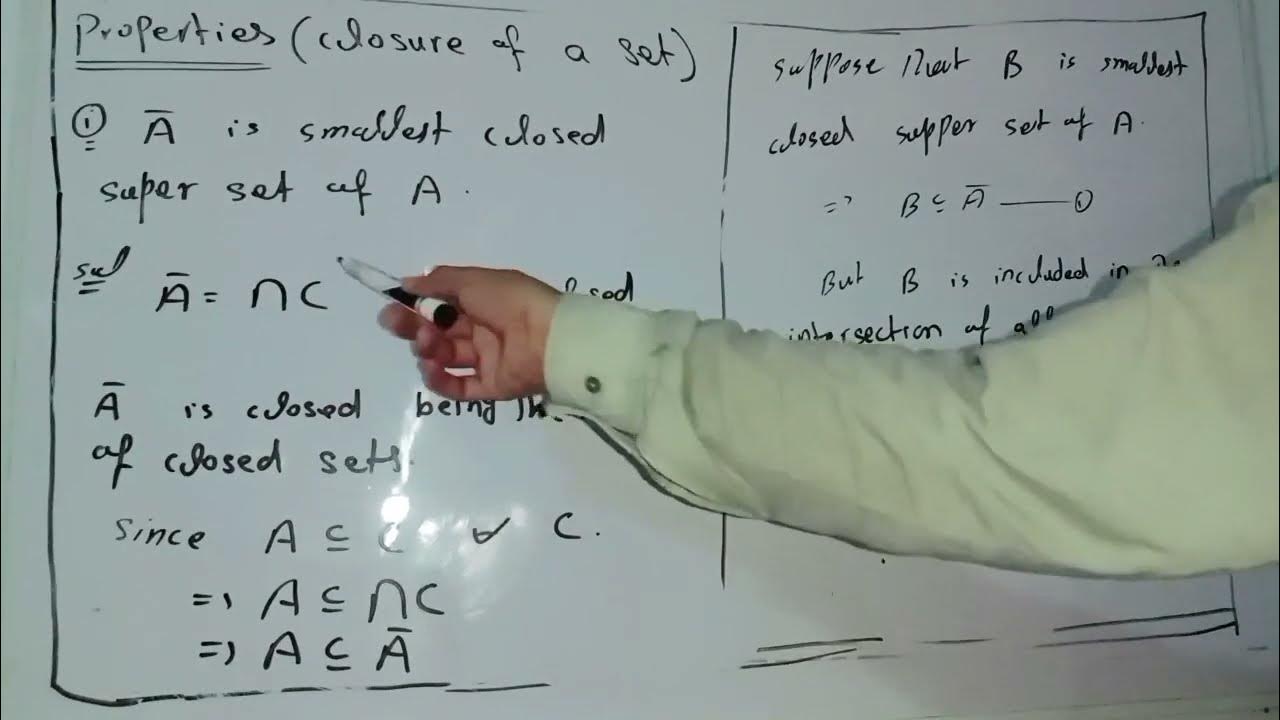 Properties (closure of a set)
① Ā is smallest closed
super set of A.
sol
Ā = ∩C
Ā is closed being
of closed sets.
Since A ⊆ C ∀ C.
=> A ⊆ ∩C
=> A ⊆ Ā
suppose that B is smallest
closed supper set of A.
=> B ⊆ Ā —— ①
But B is included in
intersection of all